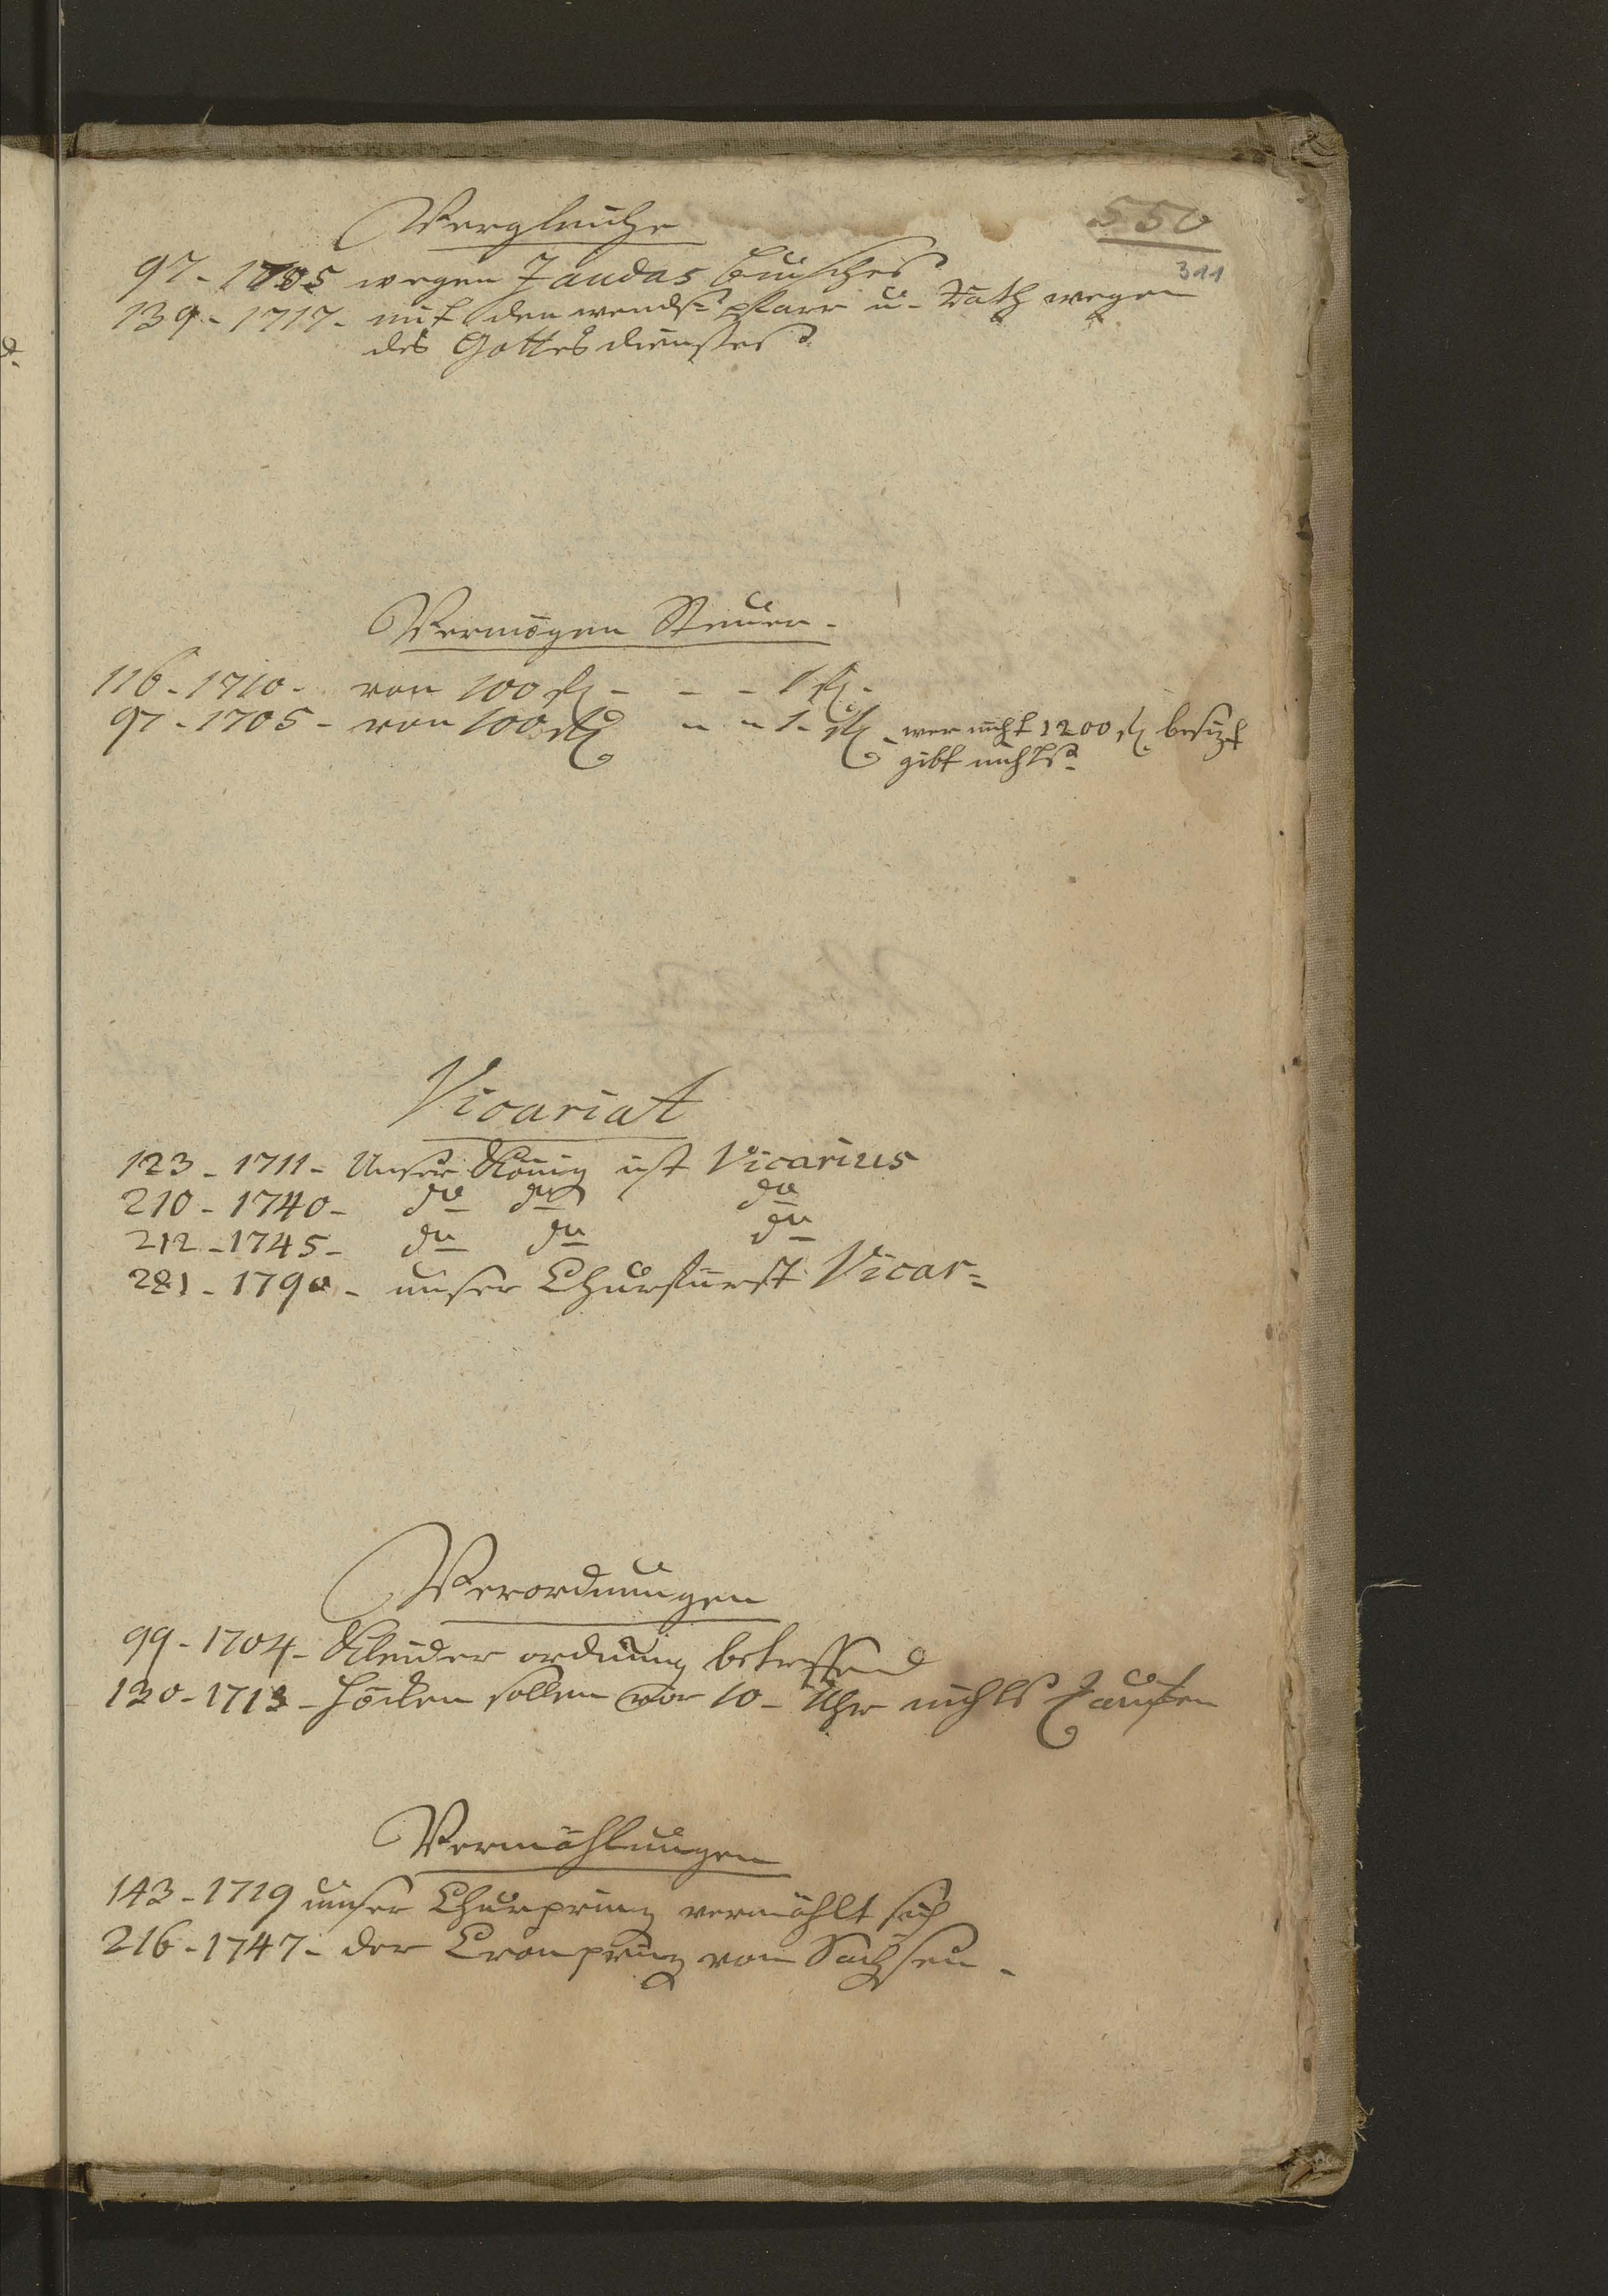 Vergleiche
550
311
97 - 1705 wegen Jaudas Busches
139 - 1717 - mit den wends. Pfarr u. Rath wegen
des Gottes dienstes
Vermögen Steuer -
116 - 1710 - von 100 fl - - - 1 fl -
97 - 1705 - von 100 - - 1 - wer nicht 1200 besizt
gibt nichts
Vicariat
123 - 1711 - Unser König ist Vicarius
210 - 1740 - do do do
212 - 1745 - do do do
281 - 1790 - unser Churfürst Vicar=
Verordnungen
99 - 1704 - Kleider ordnung betreffend
130 - 1713 - Höcken sollen vor 10 - Uhr nichts kaufen
Vermählungen
143 - 1719 unser Churprinz vermählt sich
216 - 1747 - der Cronprinz von Sachsen -